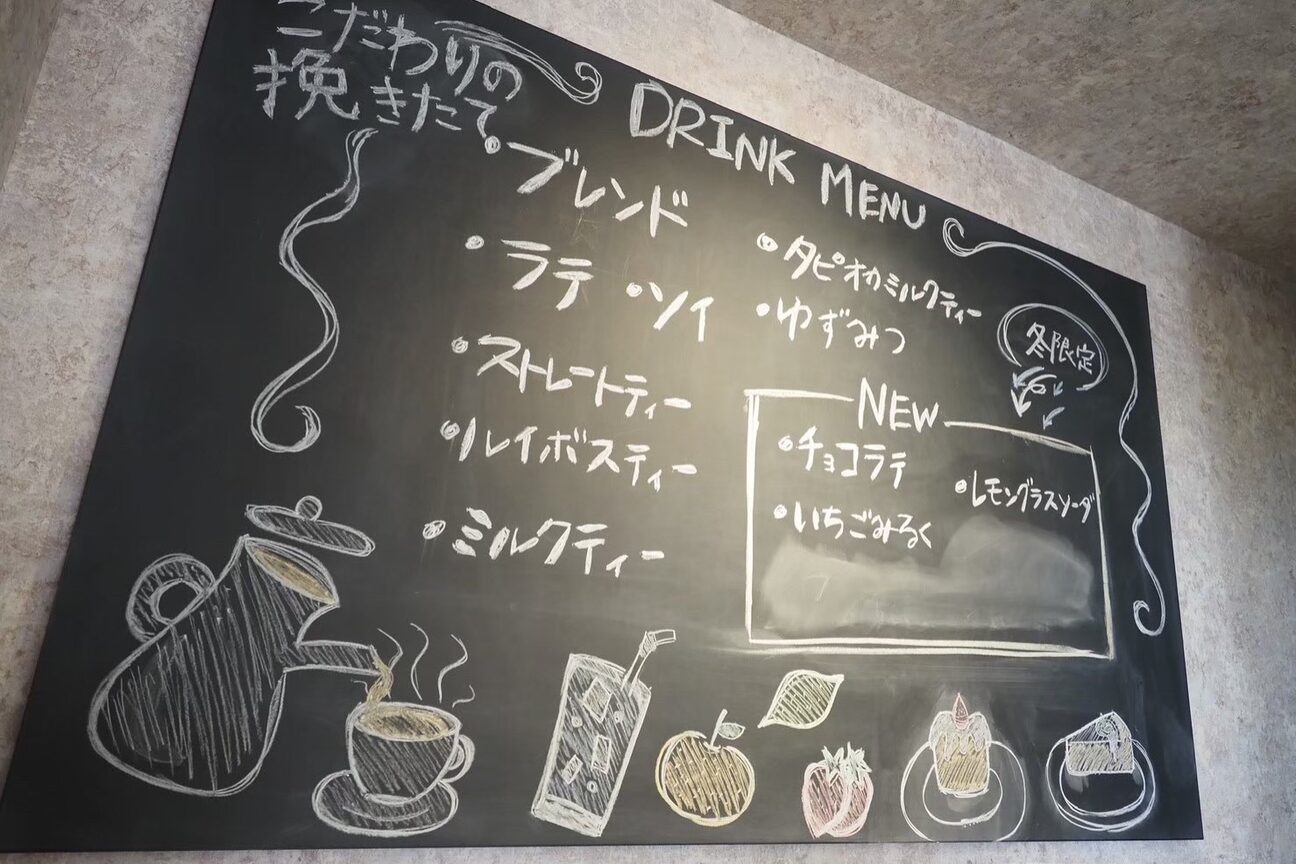 こだわりの
挽きたて
DRINK MENU
・ブレンド
・ラテ ・ソイ
・ストレートティー
・ルイボスティー
・ミルクティー
・タピオカミルクティー
・ゆずみつ
冬限定
NEW
・チョコラテ
・いちごみるく
・レモングラスソーダ